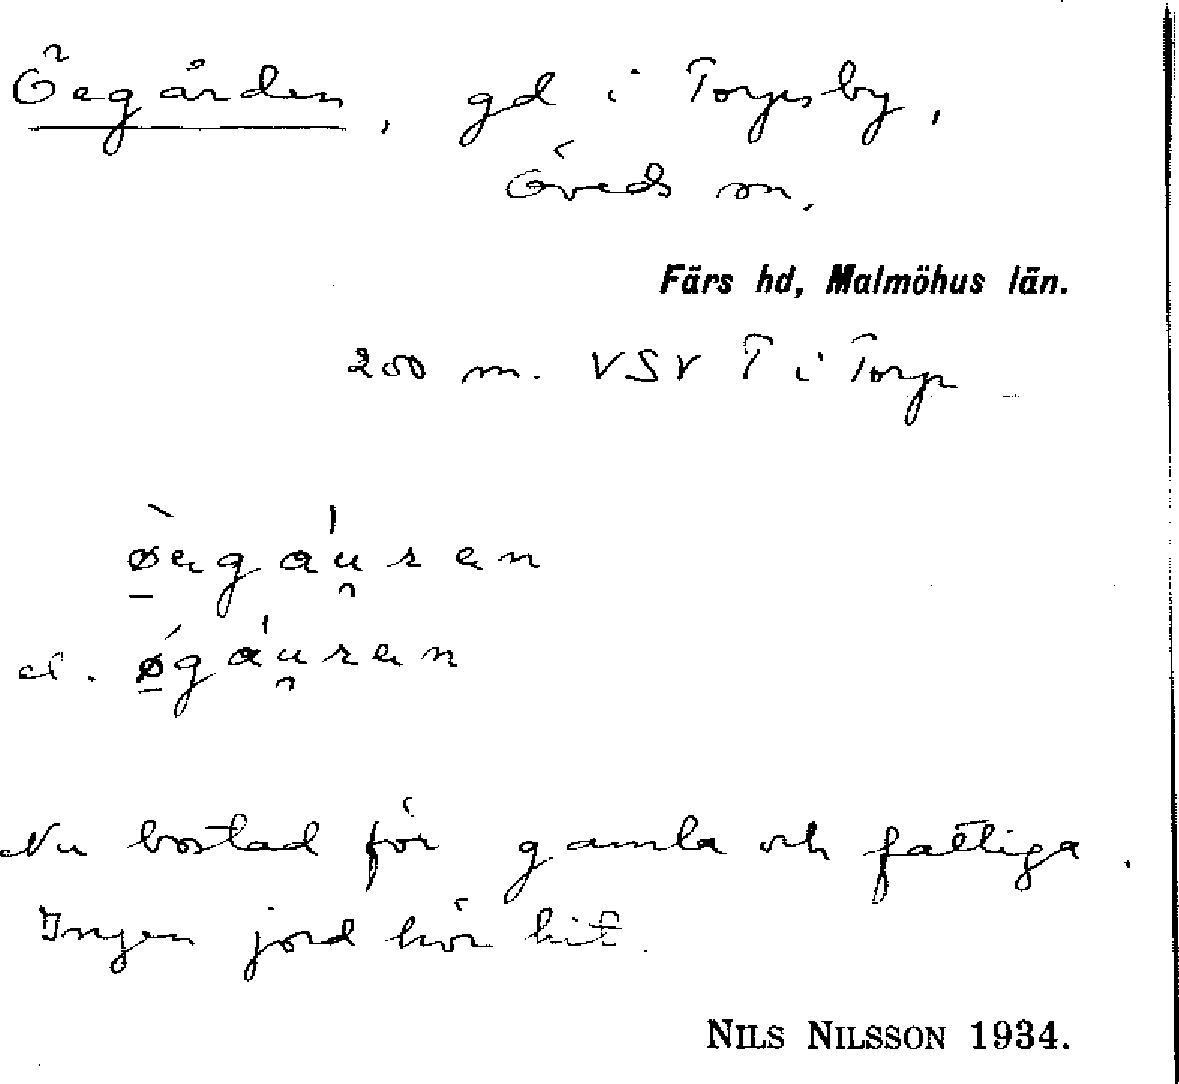 Öegården, gd i Torpsby,
Öveds sn.
Färs hd, Malmöhus län.
200 m. VSV T i Torp
ø̠̀egáu̯ren
el. ǿ̠gáu̯ren
Nu bostad för gamla och fattiga.
Ingen jord hör hit.
NILS NILSSON 1934.